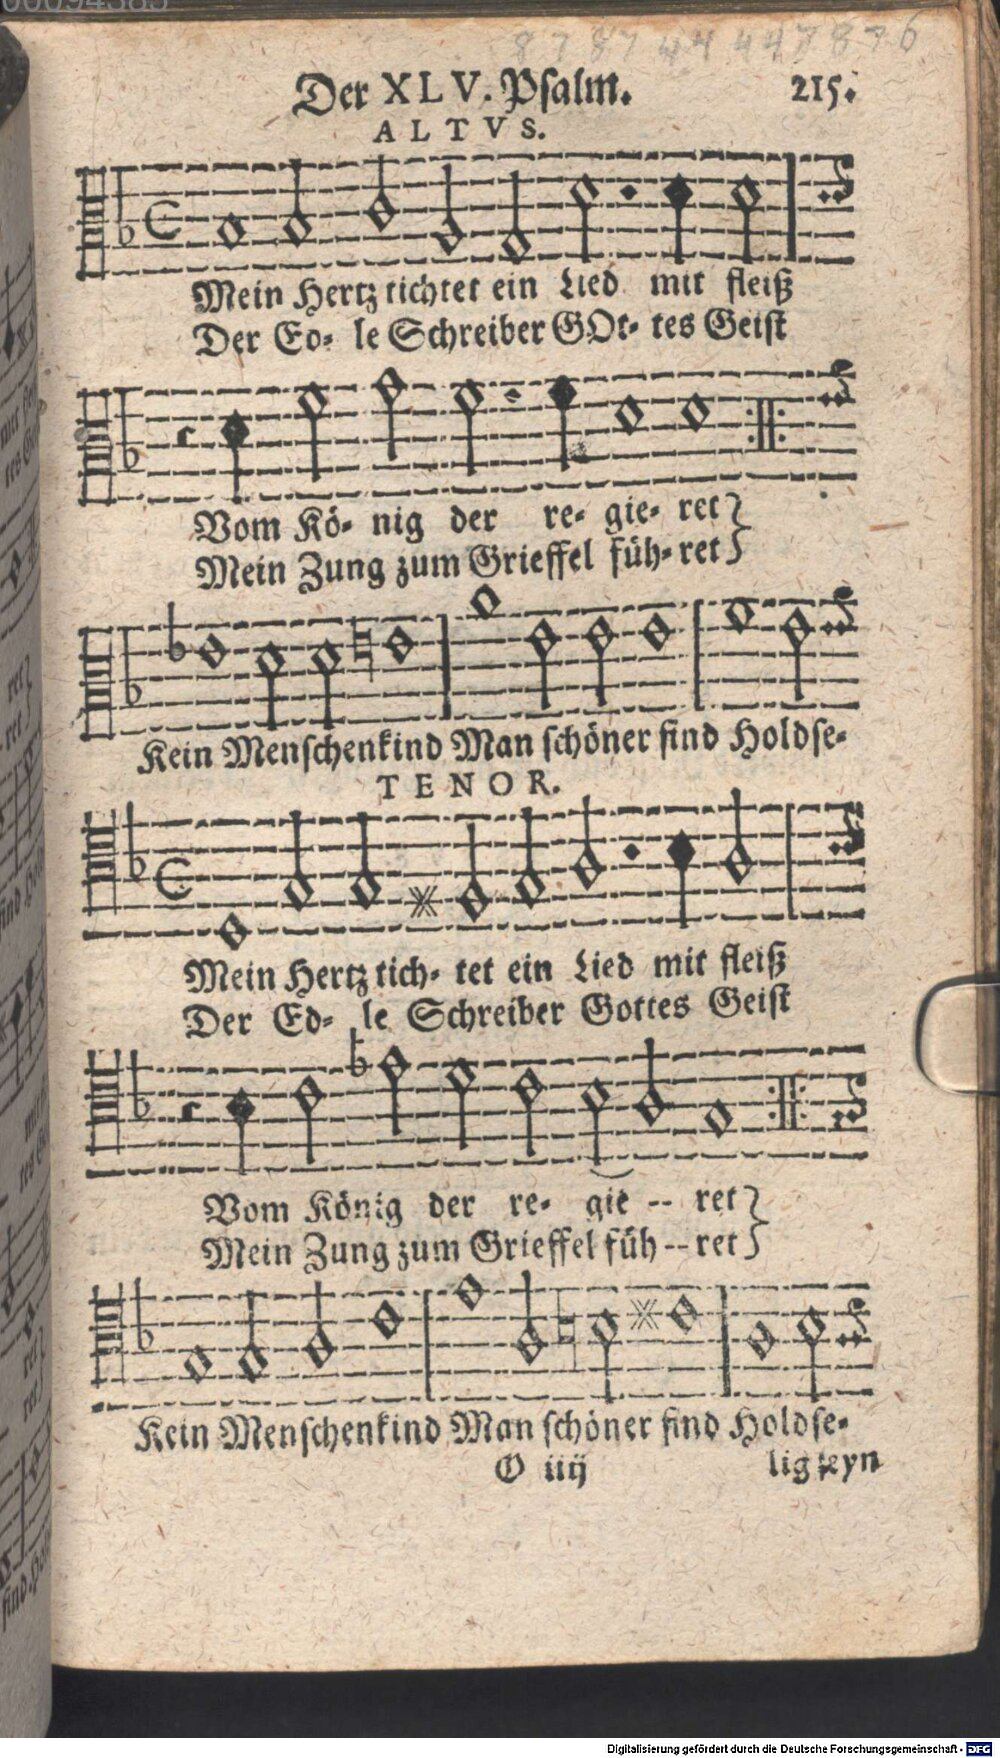 00094385
8 7 8 7 4 4 4 4 7 8 7 6
Der XLV. Psalm. 215.
ALTVS.
Mein Hertz tichtet ein Lied mit fleiß
Der Ed- le Schreiber GOt- tes Geist
Vom Kö- nig der re- gie- ret}
Mein Zung zum Grieffel füh- ret}
Kein Menschenkind Man schöner find Holdse-
TENOR.
Mein Hertz tich- tet ein Lied mit fleiß
Der Ed- le Schreiber Gottes Geist
Vom König der re- gie -- ret}
Mein Zung zum Grieffel füh -- ret}
Kein Menschenkind Man schöner find Holdse-
O iiij lig seyn
Digitalisierung gefördert durch die Deutsche Forschungsgemeinschaft - DFG